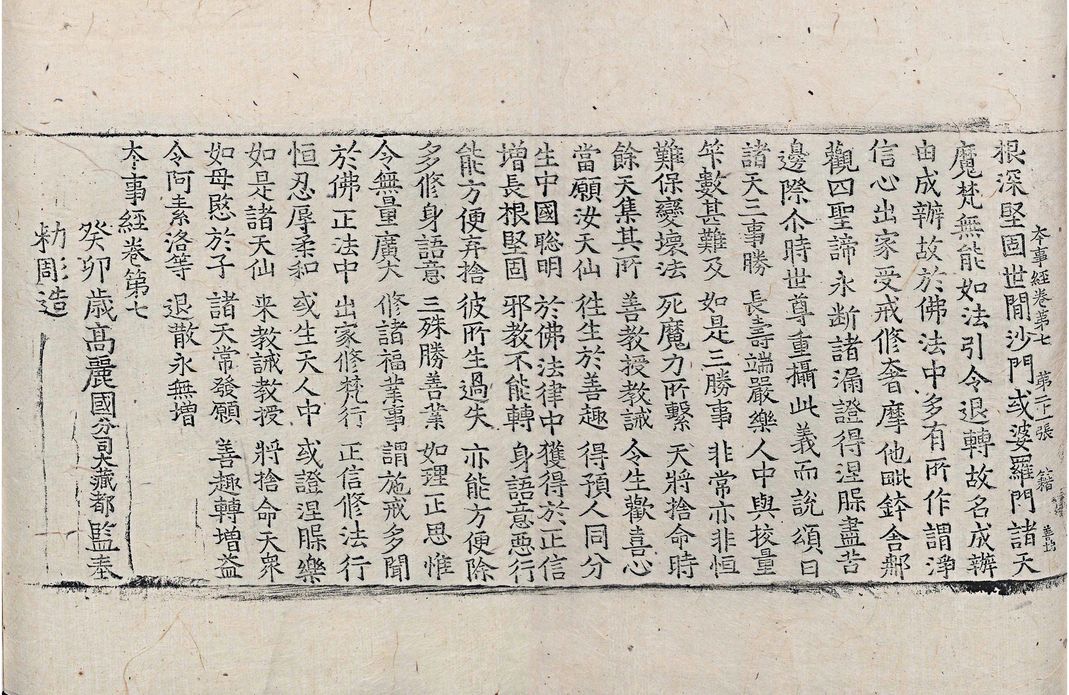 夲事經卷第七　第二十一張　籍
根深堅固世間沙門或婆羅門諸天
魔梵無能如法引令退轉故名成辦
由成辦故於佛法中多有所作謂淨
信心出家受戒修奢摩他毗鉢舍那
觀四聖諦永斷諸漏證得涅槃盡苦
邊際尒時世尊重攝此義而說頌曰
諸天三事勝　長壽端嚴樂　人中與挍量
筭數甚難及　如是三勝事　非常亦非恒
難保變壞法　死魔力所繫　天將捨命時
餘天集其所　善教授教誡　令生歡喜心
當願汝天仙　徃生於善趣　得預人同分
生中國聡明　於佛法律中　獲得於正信
增長根堅固　邪教不能轉　身語意惡行
能方便弃捨　彼所生過失　亦能方便除
多修身語意　三殊勝善業　如理正思惟
令無量廣大　修諸福業事　謂施戒多聞
於佛正法中　出家修梵行　正信修法行
恒忍辱柔和　或生天人中　或證涅槃樂
如是諸天仙　来教誡教授　將捨命天衆
如母愍於子　諸天常發願　善趣轉增益
令阿素洛等　退散永無增
夲事經卷第七
癸卯歳高麗國分司大藏都監奉
勑彫造